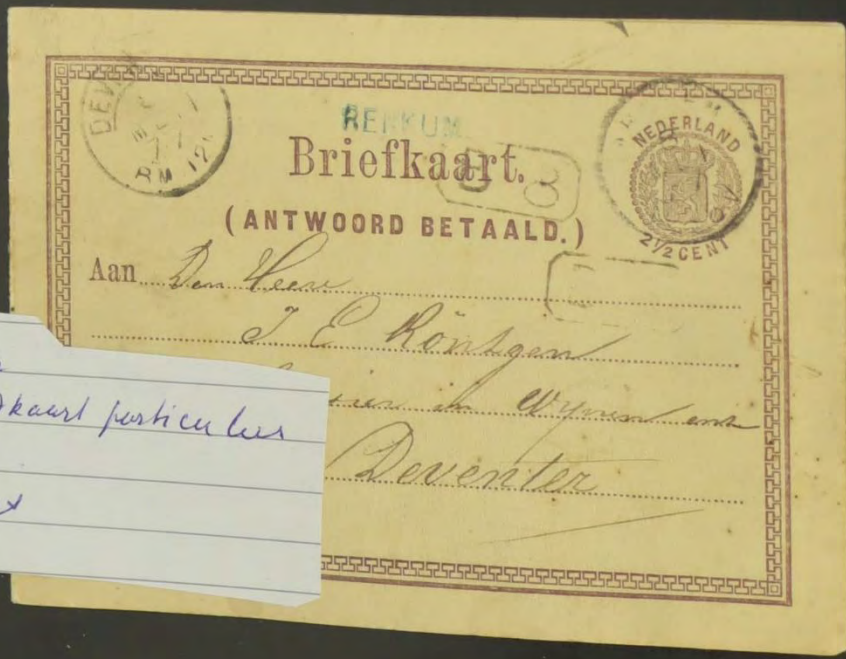 RENKUM
Briefkaart.
(ANTWOORD BETAALD.)
NEDERLAND
2½ CENT
Aan Den Heer
J E Röntgen
in Wijnen enz
Deventer
kaart particulier